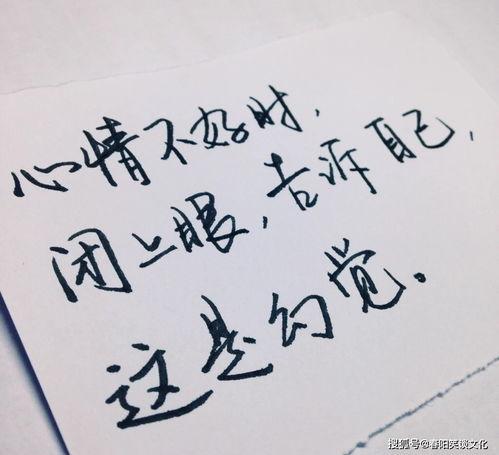 心情不好时，
闭上眼，告诉自己，
这是幻觉。
搜狐号@春阳笑谈文化